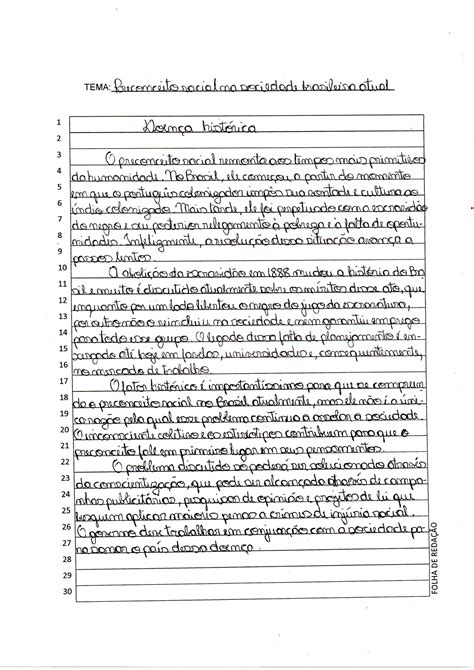 TEMA: Preconceito racial na sociedade brasileira atual
1 Doença histórica
2
3 O preconceito racial remonta aos tempos mais primitivos
4 da humanidade. No Brasil, ele começou a partir do momento
5 em que o português colonizador impôs sua vontade e cultura ao
6 índio colonizado. Mais tarde, ele foi perpetuado com a escravidão
7 do negro e seu posterior relegamento à pobreza e à falta de oportu-
8 nidades. Infelizmente, a resolução dessa situação avança a
9 passos lentos.
10 A abolição da escravidão em 1888 mudou a história do Bra-
11 sil e muito é discutido atualmente sobre os méritos desse ato, que,
12 enquanto por um lado libertou o negro do jugo da escravatura,
13 por outro não o reincluiu na sociedade e nem garantiu emprego
14 para todo esse grupo. O legado dessa falta de planejamento é en-
15 xergado até hoje em favelas, universidades e, consequentemente,
16 no mercado de trabalho.
17 O fator histórico é importantíssimo para que se compreen-
18 da o preconceito racial no Brasil atualmente, mas ele não é a úni-
19 ca razão pela qual esse problema continua a assolar a sociedade.
20 O inconsciente coletivo e os estereótipos contribuem para que o
21 preconceito fale em primeiro lugar em seus pensamentos.
22 O problema discutido só poderá ser solucionado através
23 da conscientização, que pode ser alcançada através de campa-
24 nhas publicitárias, pesquisas de opinião e projetos de lei que
25 busquem aplicar maiores penas a crimes de injúria racial.
26 O governo deve trabalhar em conjunção com a sociedade pa-
27 ra sanar o país dessa doença.
28
29
30
FOLHA DE REDAÇÃO